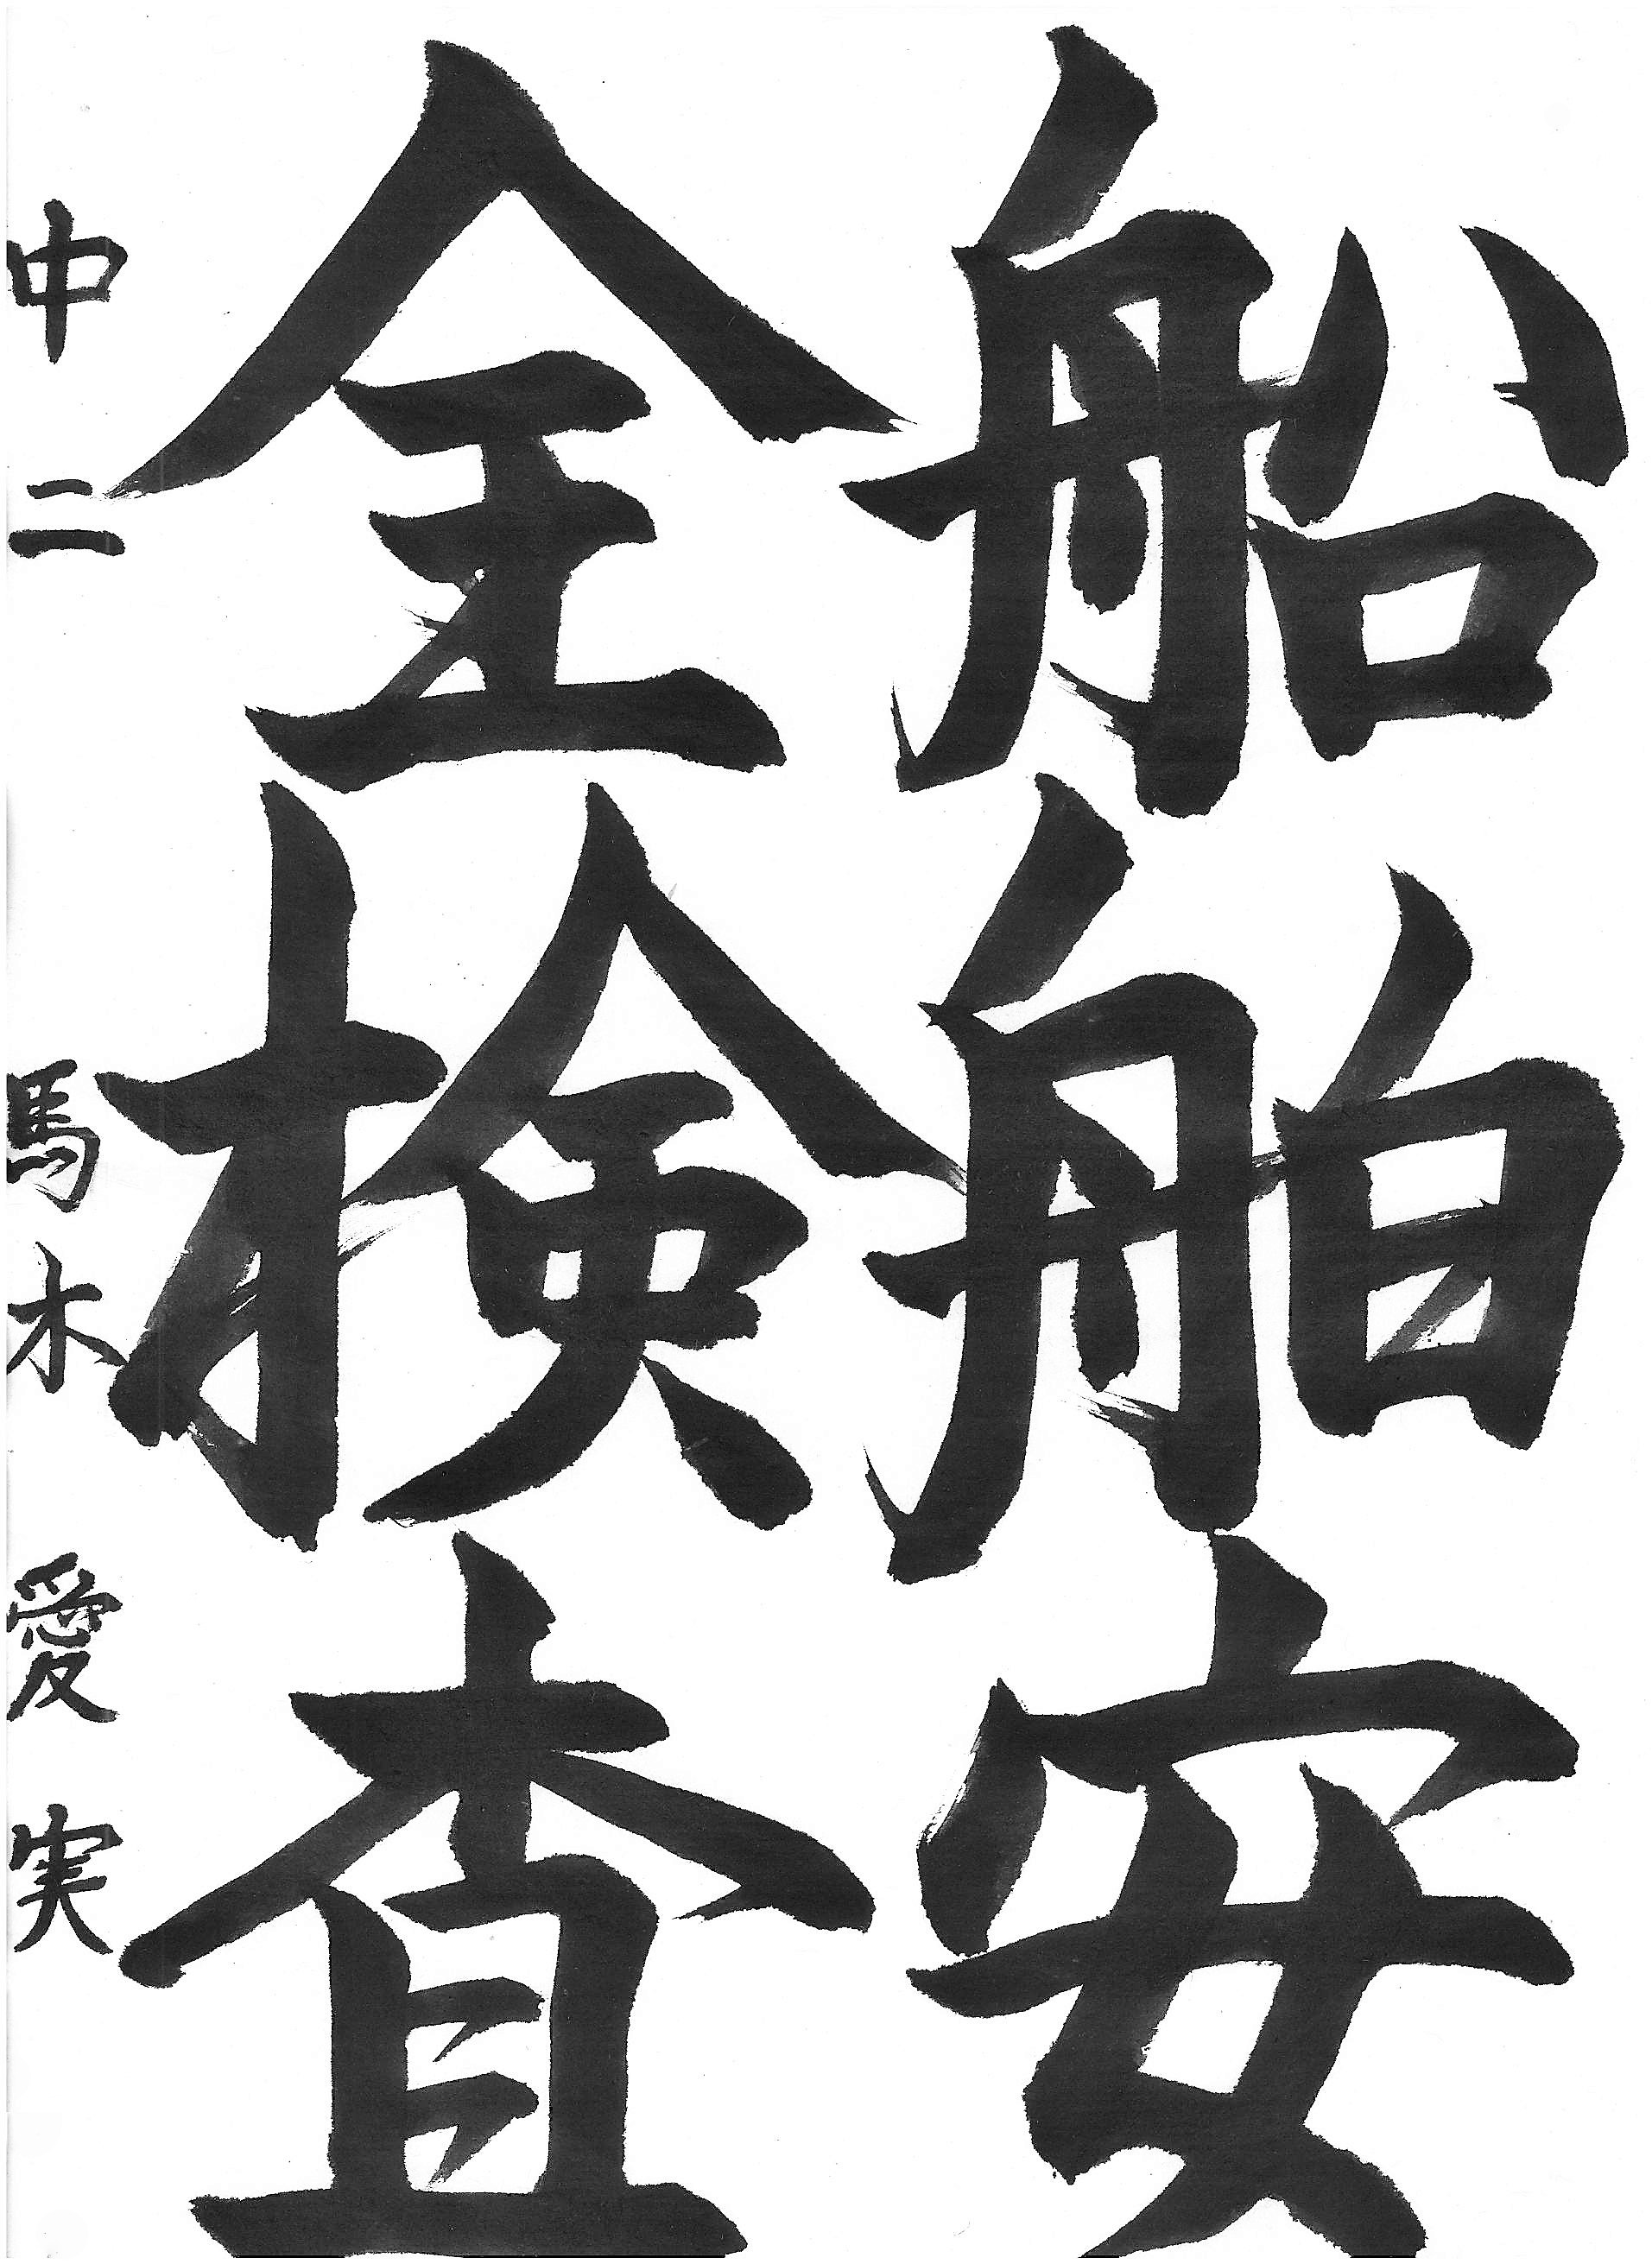 船舶安
全検査
中二 馬木 愛実